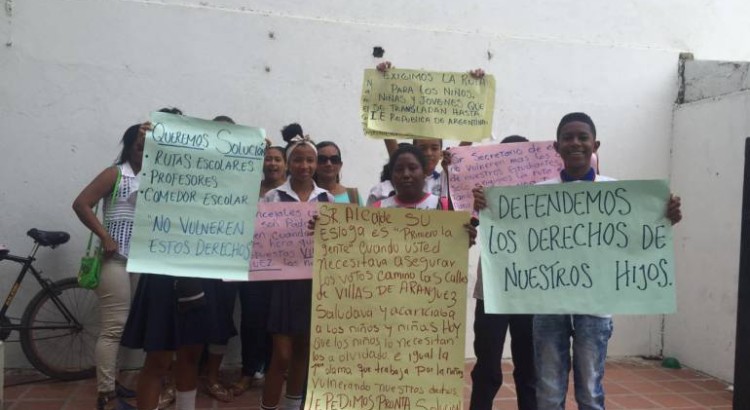 QUEREMOS SOLUCIÓN
• RUTAS ESCOLARES
• PROFESORES
• COMEDOR ESCOLAR
NO VULNEREN
ESTOS DERECHOS
EXIGIMOS LA RUTA
PARA LOS NIÑOS,
NIÑAS Y JOVENES QUE
SE TRANSLADAN HASTA
I.E REPUBLICA DE ARGENTINA
Secretario de
no vulneren mas
de nuestros
SR. AlCAlde SU
Eslogan es "Primero la
gente" Cuando usted
Necesitava asegurar
los votos camino las calles
de VILLAS DE ARANJUEZ
Saludava y acariciaba
a los niños y niñas Hoy
que los niños lo necesitan
los a olvidado e igual la
1ª dama que trabaja por la niñez
vulnerando nuestros
LE PEDIMOS PRONTA Solución
DEFENDEMOS
LOS DERECHOS DE
NUESTROS HIJOS.